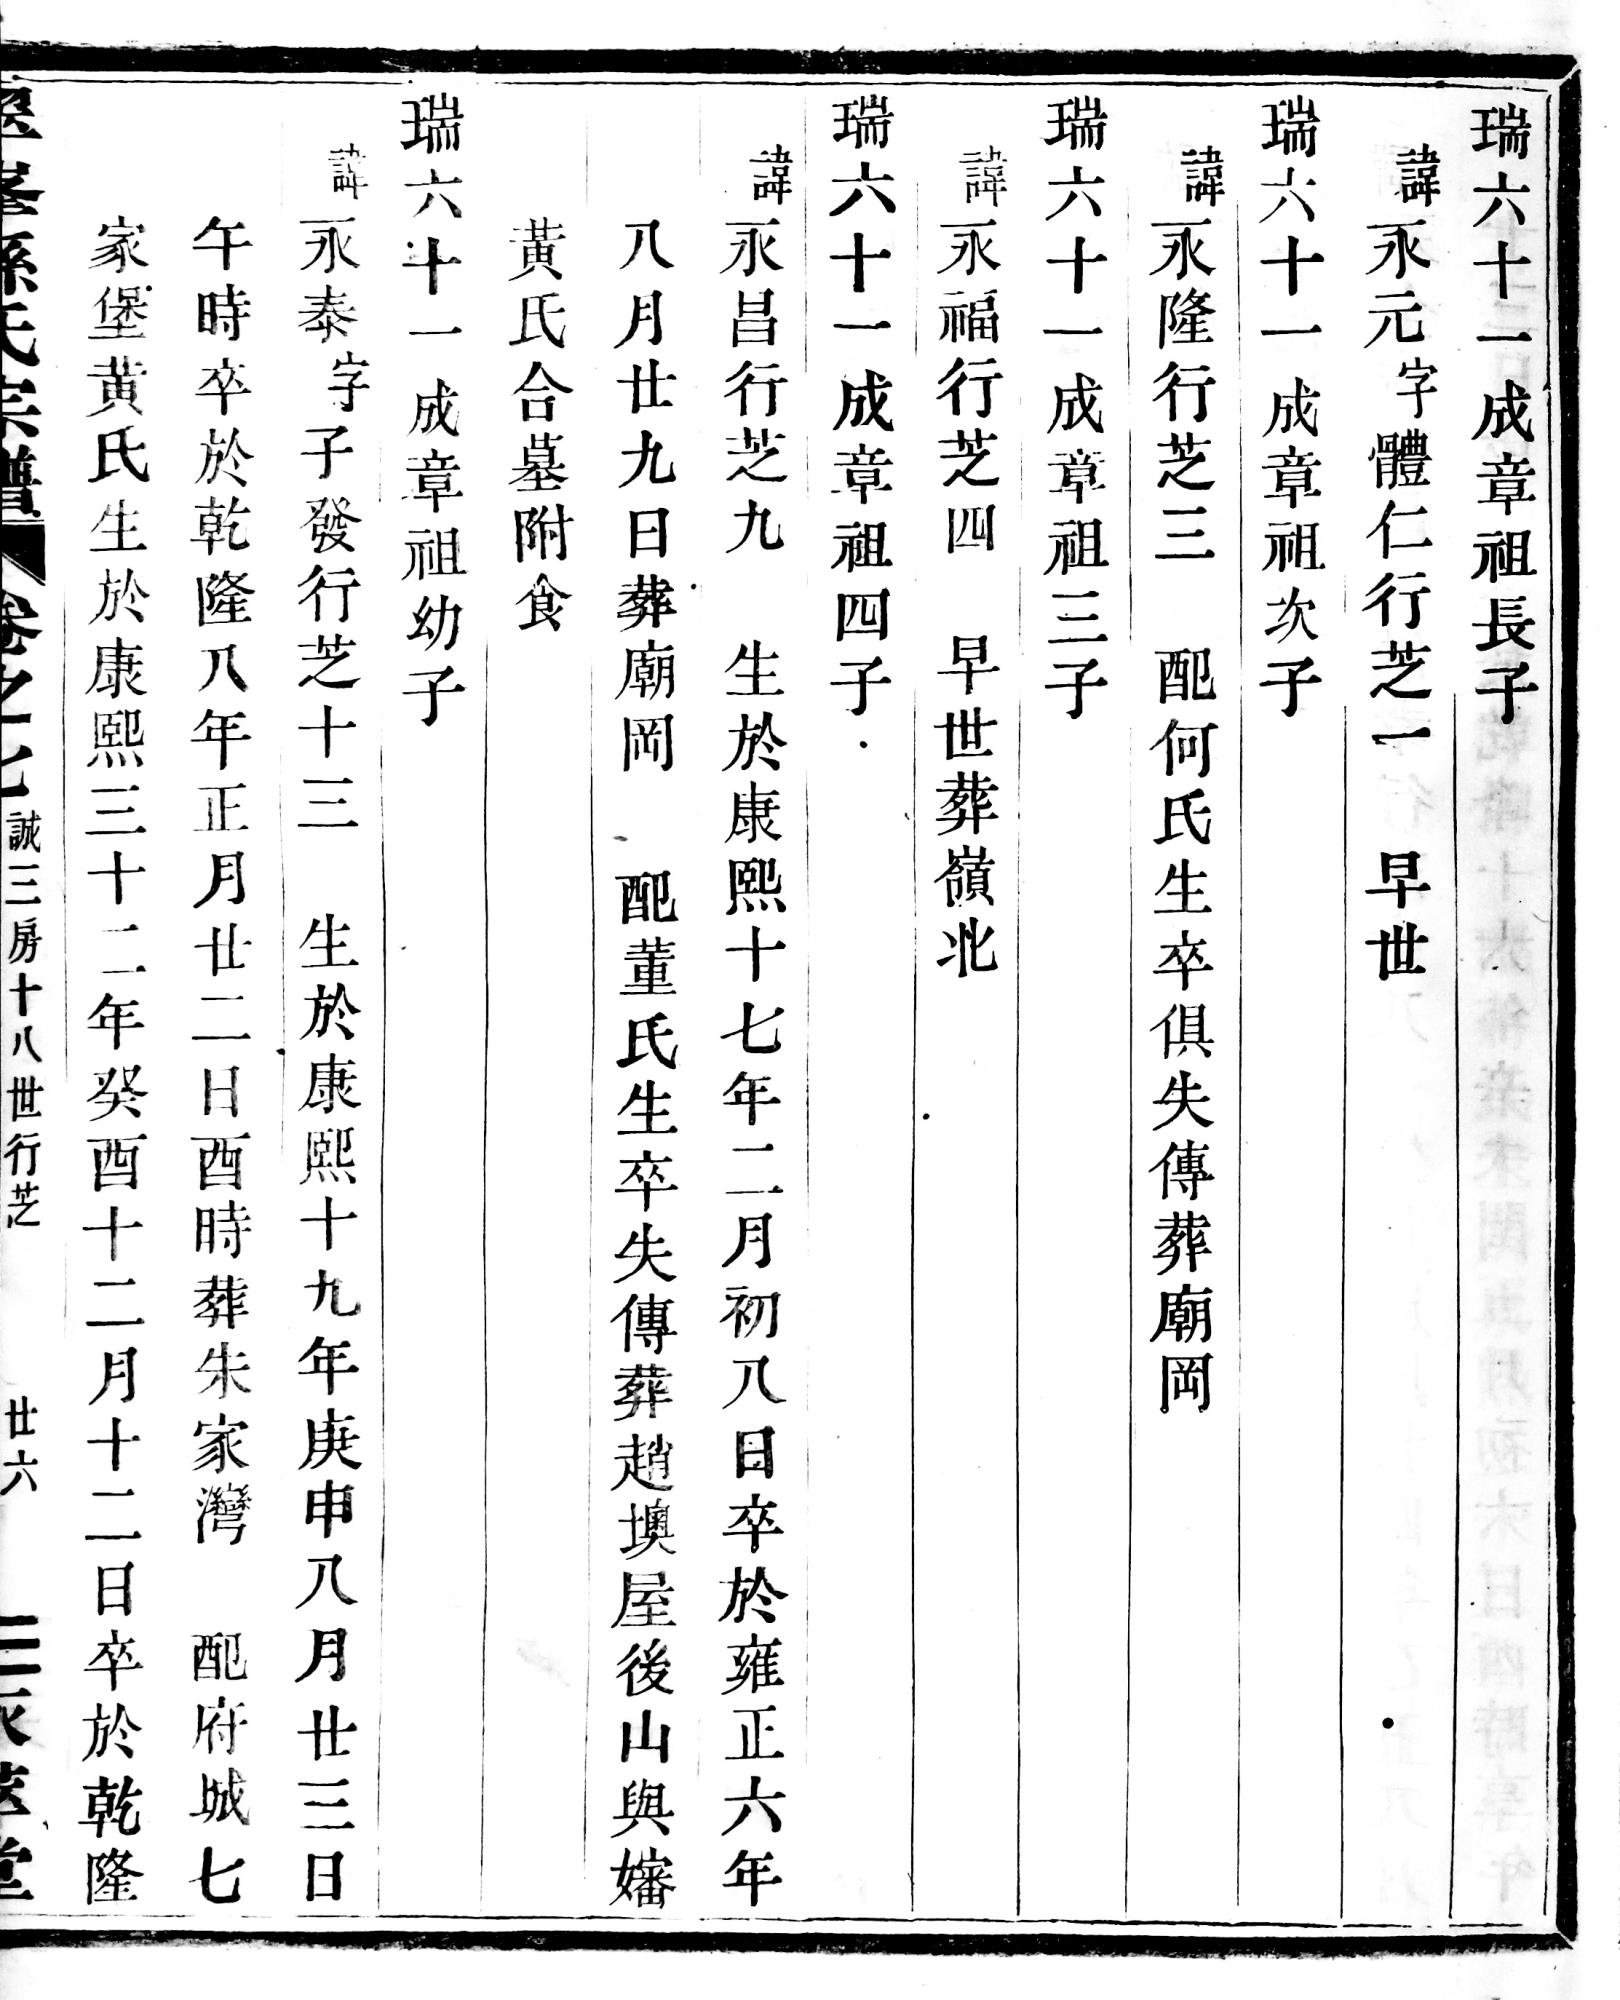 瑞六十一成章祖長子
諱永元字體仁行芝一　早世
瑞六十一成章祖次子
諱永隆行芝三　配何氏生卒俱失傳葬廟岡
瑞六十一成章祖三子
諱永福行芝四　早世葬嶺北
瑞六十一成章祖四子
諱永昌行芝九　生於康熙十七年二月初八日卒於雍正六年
八月廿九日葬廟岡　配董氏生卒失傳葬趙墺屋後山與嬸
黃氏合墓附食
瑞六十一成章祖幼子
諱永泰字子發行芝十三　生於康熙十九年庚申八月廿三日
午時卒於乾隆八年正月廿二日酉時葬朱家灣　配府城七
家堡黃氏生於康熙三十二年癸酉十二月十二日卒於乾隆
孫氏宗譜　卷之十七　誠三房十八世行芝　廿六　堂